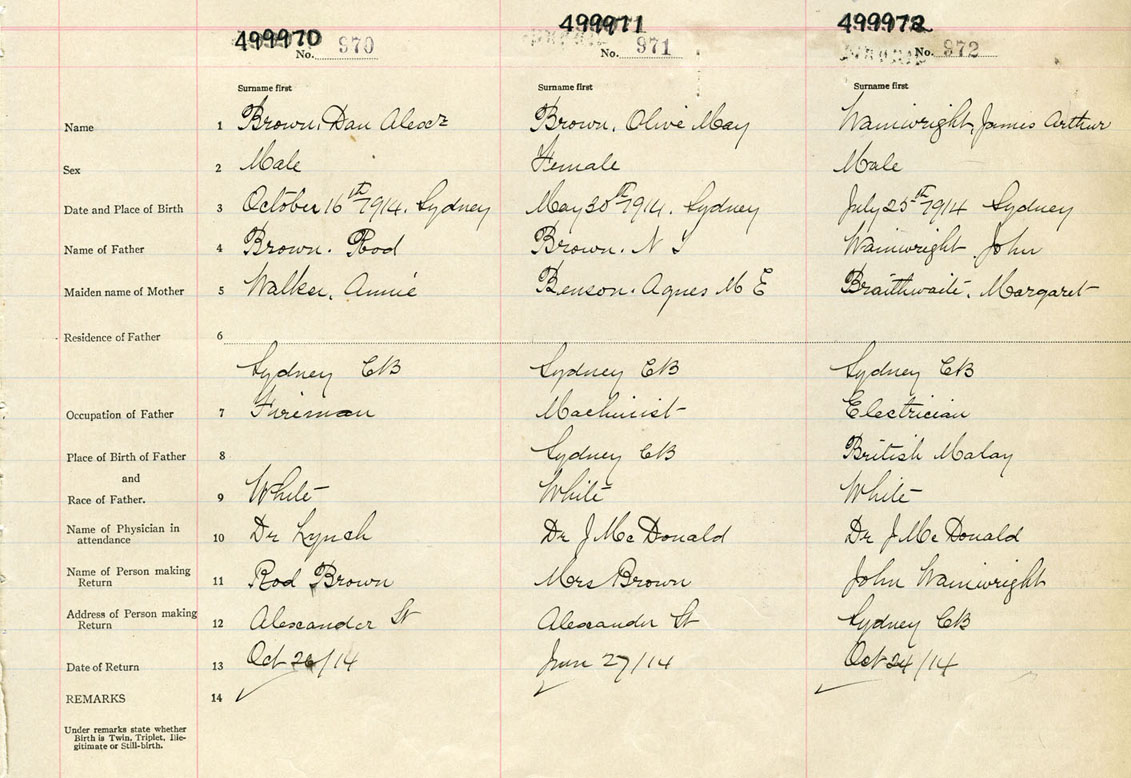 499970 499971 499972
No. 970 No. 971 No. 972
Surname first Surname first Surname first
Name 1 Brown, Dan Alexr Brown, Olive May Wainwright, James Arthur
Sex 2 Male Female Male
Date and Place of Birth 3 October 16th 1914. Sydney May 30th 1914. Sydney July 25th 1914 Sydney
Name of Father 4 Brown. Rod Brown. N S Wainwright John
Maiden name of Mother 5 Walker, Annie Benson. Agnes M E Braithwaite. Margaret
Residence of Father 6
Sydney CB Sydney CB Sydney CB
Occupation of Father 7 Fireman Machinist Electrician
Place of Birth of Father 8 Sydney CB British Malay
and
Race of Father. 9 White White White
Name of Physician in
attendance 10 Dr Lynch Dr J McDonald Dr J McDonald
Name of Person making
Return 11 Rod Brown Mrs Brown John Wainwright
Address of Person making
Return 12 Alexander St Alexander St Sydney CB
Date of Return 13 Oct 26/14 Jun 27/14 Oct 24/14
REMARKS 14
Under remarks state whether
Birth is Twin, Triplet, Ille-
gitimate or Still-birth.